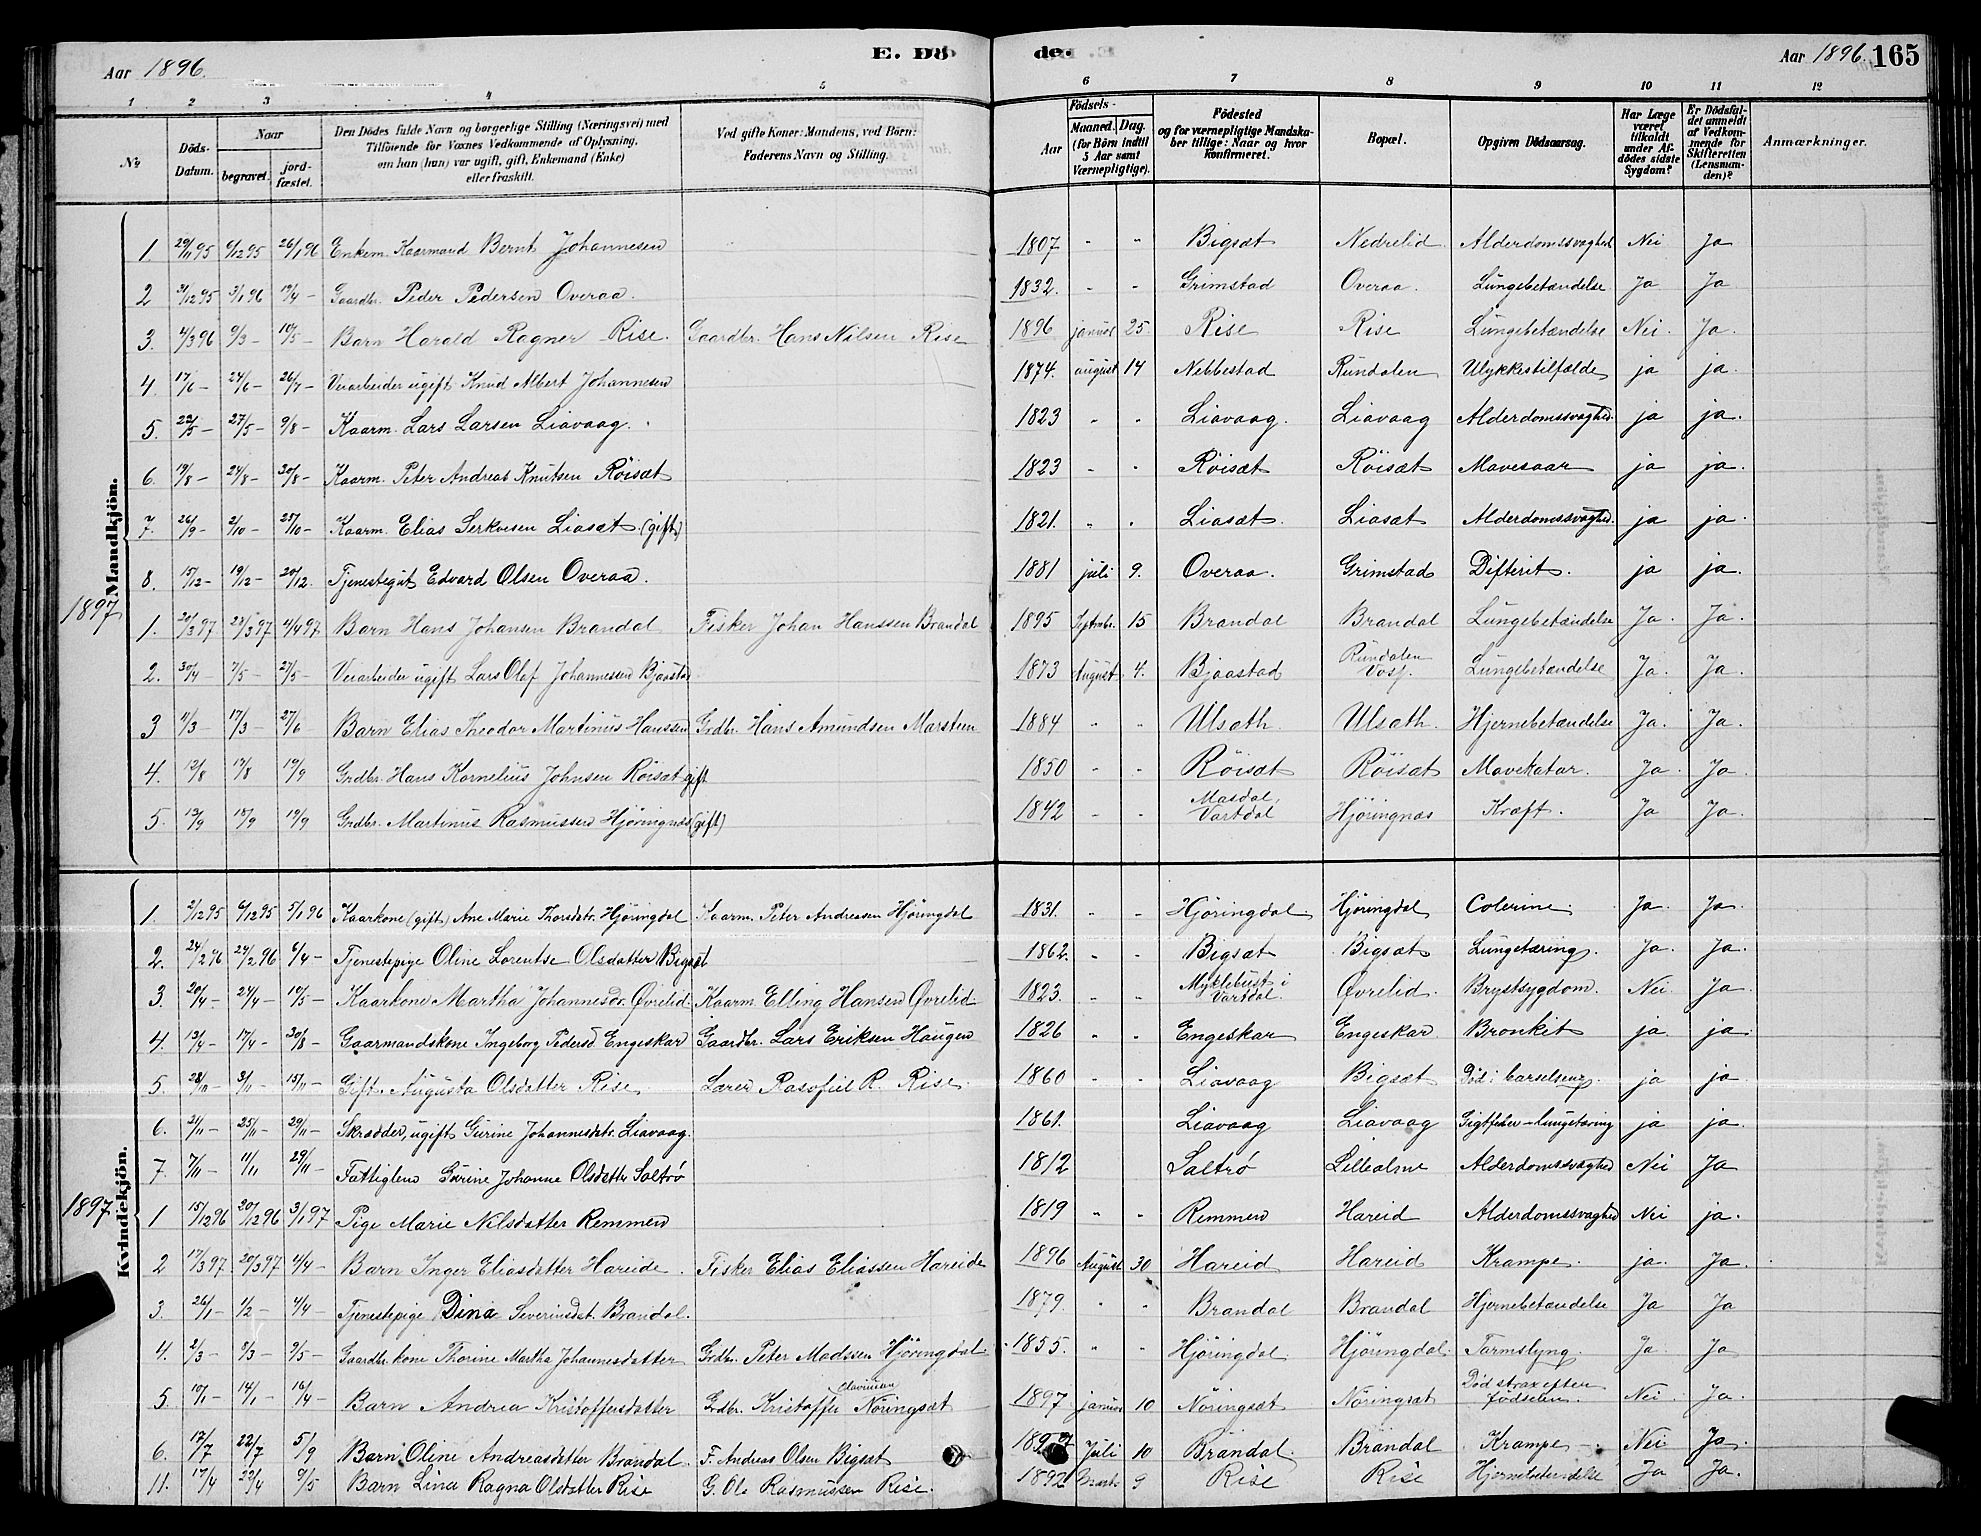 Aar 1896. E. Dö de. Aar 1896. 165
1 2 3 4 5 6 7 8 9 10 11 12
No Döds-Datum. Naar begravet. jordfæstet. Den Dödes fulde Navn og borgerlige Stilling (Næringsvei) med Tilföiende for Voxnes Vedkommende af Oplysning, om han (hun) var ugift, gift, Enkemand (Enke) eller fraskilt. Ved gifte Koner: Mandens, ved Börn: Faderens Navn og Stilling. Födsels- Aar Maaned. Dag. (for Börn indtil 5 Aar samt Værnepligtige). Födested og for værnepligtige Mandskaber tillige: Naar og hvor konfirmeret. Bopæl. Opgiven Dödsaarsag. Har Læge været tilkaldt under Afdödes sidste Sygdom? Er Dödsfaldet anmeldt af Vedkommende for Skifteretten (Lensmanden)? Anmærkninger.
Mandkjön.
1 29/11 95 6/12 95 26/1 96 Enkem. Kaarmand Bernt Johannesen 1807 " " Bigsæt Nedrelid Alderdomssvaghed Nei Ja
2 31/12 95 3/1 96 19/4 – Gaardbr. Peder Pedersen Overaa. 1832. - - Grimstad Overaa. Lungebetændelse Ja Ja
3. 4/3 96 9/3 – 10/5 – Barn Harald Ragner Rise. Gaardbr. Hans Nilsen Rise 1896 januar 25. Rise Rise Lungebetændelse Nei. Ja.
4. 17/6 – 24/6 – 26/7 – Veiarbeider ugift Knud Albert Johannesen 1874. august 14 Nebbestad Rundalen Ulykkestilfælde ja ja.
5. 22/5 – 27/5 – 9/8 – Kaarm. Lars Larsen Liavaag. 1823 " " Liavaag. Liavaag Alderdomssvaghed ja ja.
6. 19/8 – 24/8 – 30/8 – Kaarm. Peter Andreas Knutsen Röisæt 1823 " " Röisæt Röisæt Mavesaar ja ja.
7. 26/9 – 2/10 – 25/10 – Kaarm. Elias Serkvesen Liasæt (gift) 1821. " " Liasæt. Liasæt Alderdomssvaghed. ja ja.
8. 15/12 – 19/12 – 20/12. Tjenestegut Edvard Olsen Overaa. 1881 juli 9. Overaa. Grimstad Difterit. ja ja.
1897
1. 20/3 97 23/3 97 4/4 97 Barn Hans Johansen Brandal Fisker Johan Hanssen Brandal 1895 Septmbr. 15 Brandal Brandal Lungebetændelse Ja. Ja.
2. 30/4 7/5 – 27/5 – Veiarbeider ugift Lars Olaf Johannessen Bjaastad 1873 August 4. Bjaastad Rundalen Vosf. Lungebetændelse Ja. Ja.
3 11/3 17/3 27/6 Barn Elias Theodor Martinus Hanssen Grdbr. Hans Amundsen Marsteen 1884 " " Ulsath. Ulsath. Hjernebetændelse Ja. Ja.
4. 12/8 17/8 19/9 Grdbr. Hans Kornelius Johnsen Röisæt gift 1850 " " Röisæt Röisæt Mavekatar. Ja. Ja.
5. 13/9 18/9 19/9 Grdbr. Martinus Rasmussen Hjöringnæs (gift) 1842 - - Masdal, Vartdal Hjöringnæs Kræft. Ja Ja.
Kvindekjön.
1. 2/12 95 6/12 95 5/1 96 Kaarkone (gift) Ane Marie Thorsdtr. Hjöringdal Kaarm. Peter Andreasen Hjöringdal 1831. " " Hjöringdal. Hjöringdal Colerine. Ja. Ja.
2. 24/2 96 29/2 96 6/4 – Tjenestepige Oline Lorentse Olsdatter Bigsæt 1862. - - Bigsæt Bigsæt Lungetæring. Ja. Ja.
3. 20/4 – 24/4 – 10/5 – Kaarkone Martha Johannesdr. Øvrelid. Kaarm. Elling Hansen Øvrelid 1823. " " Myklebust i Vartdal. Øvrelid. Brystsygdom. Nei. Ja.
4. 13/4 – 17/4 – 30/8 – Gaarmandskone Ingeborg Pedersd Engeskar Gaardbr. Lars Eriksen Haugen 1826 " " Engeskar Engeskar Bronkit ja ja
5. 28/11 3/11 – 15/11 – Gift. Augusta Olsdatter Rise. Lærer Rasofiel R. Rise. 1860 " " Liavaag Bigsæt Död i barselseng. ja ja
6. 21/11 – 25/11 – 29/11 – Skrædder, ugift Gurine Johannesdatr. Liavaag. 1861. Liavaag Liavaag Gigtfeber – Lungetæring ja ja.
7. 7/11 – 11/11 29/11 – Fattiglem Gurine Johanne Olsdatter Saltrø 1812 Saltrø Lillealme Alderdomssvaghed Nei Ja
1897
1 15/12 96 20/12 96 3/1 97 Pige Marie Nilsdatter Remmen 1819 " " Remmen Hareid Alderdomssvaghed Nei ja.
2 17/3 97 20/3 97 4/4 – Barn Inger Eliasdatter Hareide. Fisker Elias Eliassen Hareide 1896 August 30 Hareid Hareid Krampe. ja. Ja.
3. 26/1 – 1/2 – 4/4 – Tjenestepige Dina Severinsdat. Brandal. 1879. " " Brandal Brandal Hjernebetændelse Ja Ja
4. 2/3 – 8/3 – 9/5 – Gaardbr.kone Thorine Martha Johannesdatter Grdbr. Peter Madssen Hjöringdal. 1855. " " Hjöringdal Hjöringdal. Tarmslyng. Ja. Ja
5. 10/1 – 14/1 – 16/4 – Barn Andrea Kristoffersdatter Grdbr. Kristoffer Nöringsæt 1897 januar 10 Nöringsæt Nöringsæt Död strax efter födselen. Nei. Ja.
6. 17/7 22/7 5/9 Barn Oline Andreasdatter Brandal. F. Andreas Olsen Bigsæt Juli 10 Brandal. Brandal Krampe. Nei Ja.
11. 17/4 22/4 9/5 Barn Lina Ragna Olsdatter Rise G. Ole Rasmussen Rise. 1892 Marts 9 Rise Rise Hjernebetændelse Ja Ja.